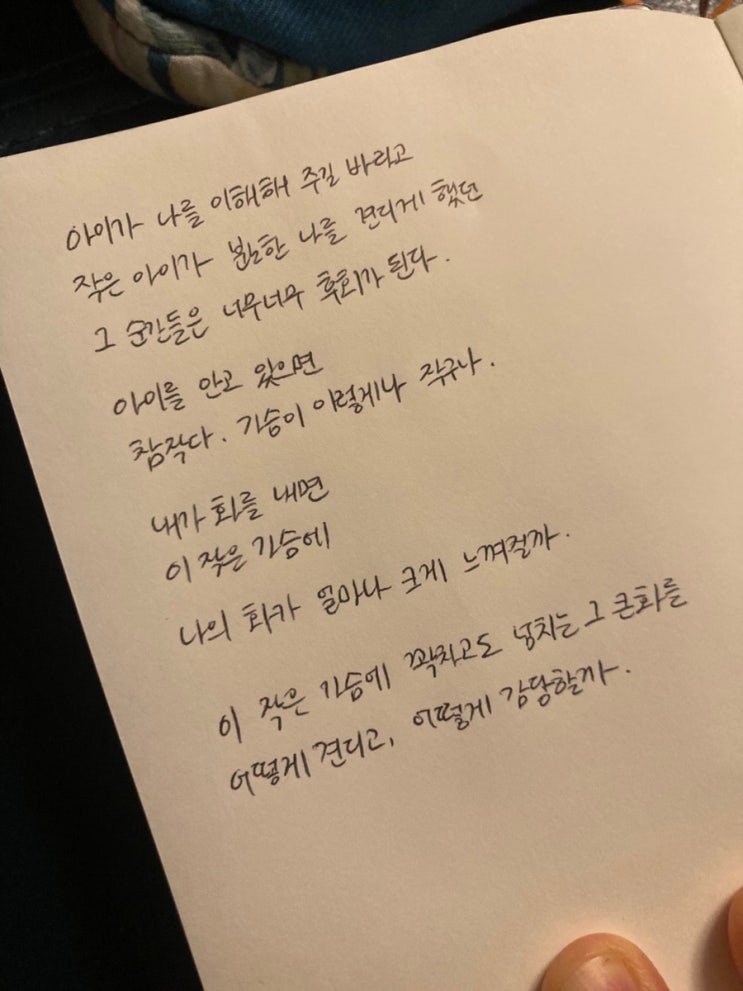 아이가 나를 이해해 주길 바라고
작은 아이가 분노한 나를 견디게 했던
그 순간들은 너무너무 후회가 된다.
아이를 안고 있으면
참작다. 가슴이 이렇게나 작구나.
내가 화를 내면
이 작은 가슴에
나의 화가 얼마나 크게 느껴질까.
이 작은 가슴에 꽉차고도 넘치는 그 큰화를
어떻게 견디고, 어떻게 감당할까.